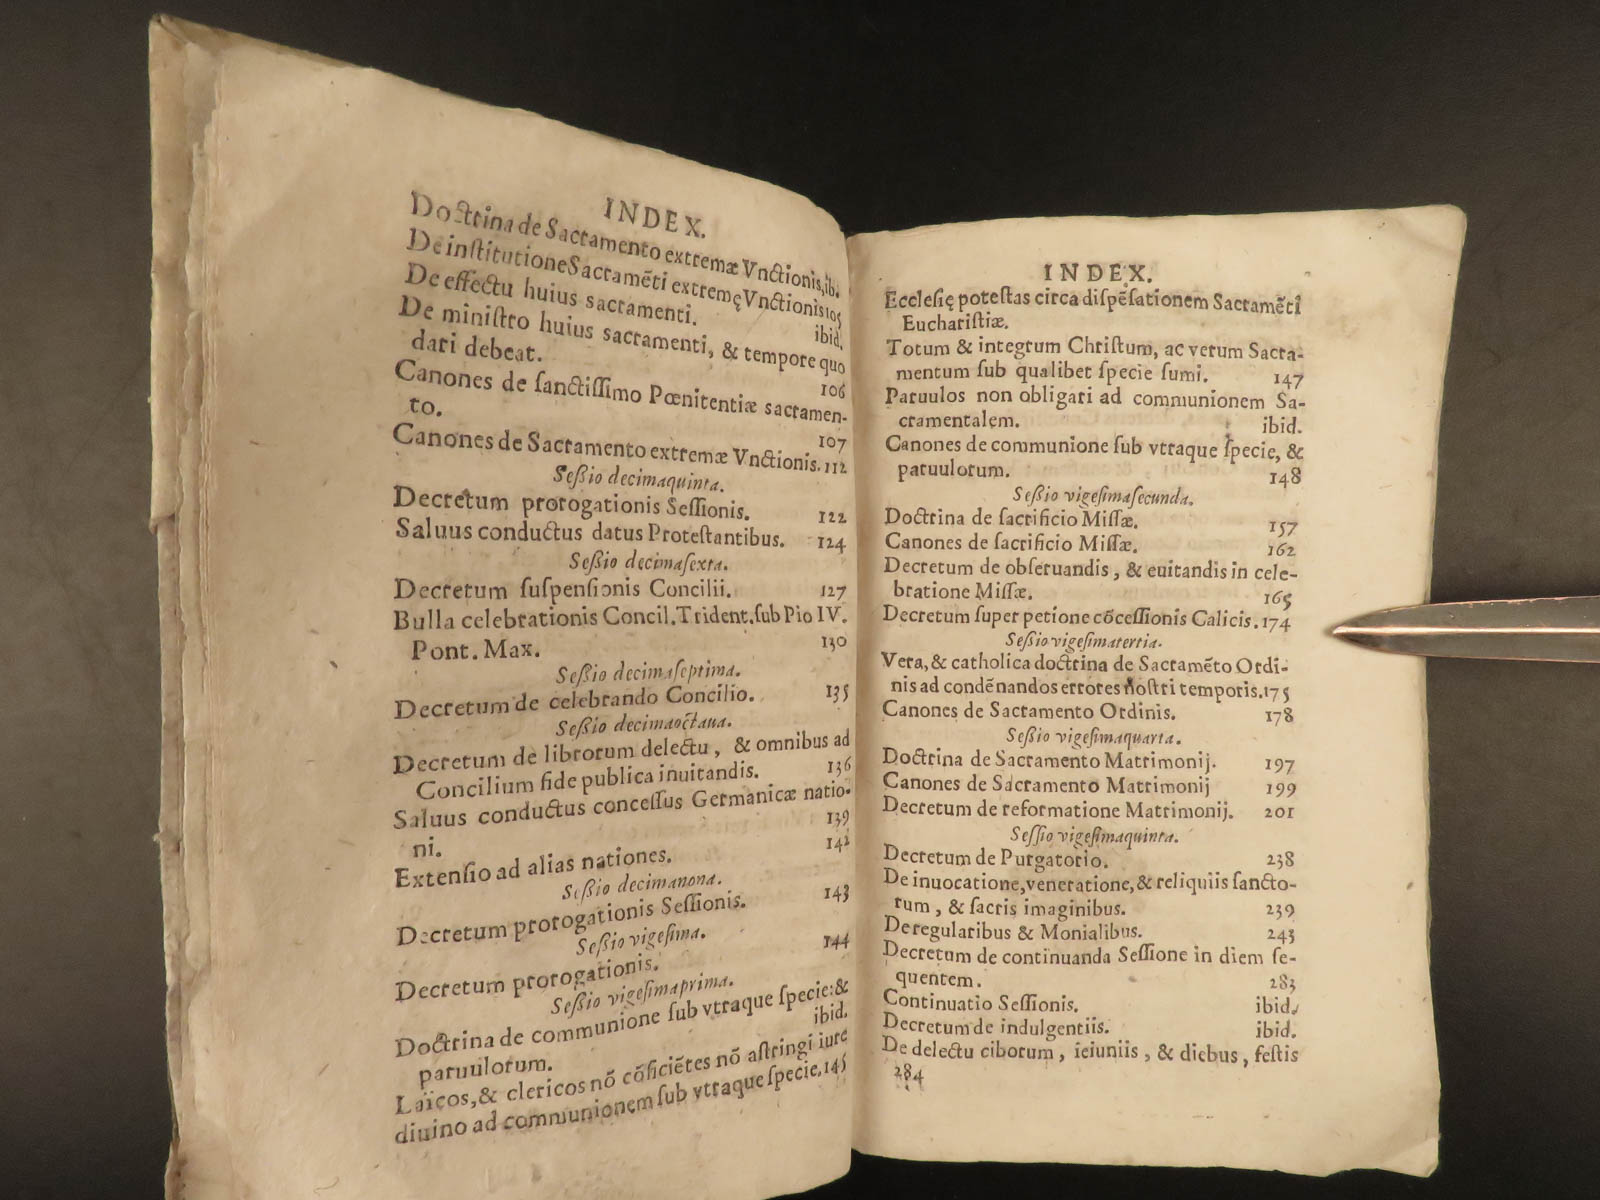 INDEX.
Doctrina de Sacramento extremæ Vnctionis, ib.
De inſtitutione Sacramēti extremę Vnctionis 105
De effectu huius sacramenti. ibid.
De miniſtro huius sacramenti, & tempore quo
dari debeat. 106
Canones de ſanctiſſimo Pœnitentiæ sacramen-
to. 107
Canones de Sacramento extremæ Vnctionis. 112
Seßio decimaquinta.
Decretum prorogationis Seſſionis. 122
Saluus conductus datus Proteſtantibus. 124
Seßio decimaſexta.
Decretum ſuſpenſionis Concilii. 127
Bulla celebrationis Concil. Trident. ſub Pio IV.
Pont. Max. 130
Seßio decimaſeptima.
Decretum de celebrando Concilio. 135
Seßio decimaoctaua.
Decretum de librorum delectu, & omnibus ad
Concilium fide publica inuitandis. 136
Saluus conductus conceſſus Germanicæ natio-
ni. 139
Extenſio ad alias nationes. 142
Seßio decimanona.
Decretum prorogationis Seſſionis. 143
Seßio vigeſima.
Decretum prorogationis. 144
Seßio vigeſimaprima.
Doctrina de communione ſub vtraque ſpecie: &
paruulorum. ibid.
Laïcos, & clericos nō cōficiētes nō aſtringi iure
diuino ad communionem ſub vtraque ſpecie. 145
INDEX.
Eccleſię poteſtas circa diſpēſationem Sacramēti
Euchariſtiæ.
Totum & integrum Chriſtum, ac verum Sacra-
mentum ſub qualibet ſpecie ſumi. 147
Paruulos non obligari ad communionem Sa-
cramentalem. ibid.
Canones de communione ſub vtraque ſpecie, &
paruulorum. 148
Seßio vigeſimaſecunda.
Doctrina de ſacrificio Miſſæ. 157
Canones de ſacrificio Miſſæ. 162
Decretum de obſeruandis, & euitandis in cele-
bratione Miſſæ. 165
Decretum ſuper petione cōceſſionis Calicis. 174
Seßio vigeſimatertia.
Vera, & catholica doctrina de Sacramēto Ordi-
nis ad condēnandos errores noſtri temporis. 175
Canones de Sacramento Ordinis. 178
Seßio vigeſimaquarta.
Doctrina de Sacramento Matrimonij. 197
Canones de Sacramento Matrimonij 199
Decretum de reformatione Matrimonij. 201
Seſſio vigeſimaquinta.
Decretum de Purgatorio. 238
De inuocatione, veneratione, & reliquiis ſancto-
rum, & ſacris imaginibus. 239
De regularibus & Monialibus. 243
Decretum de continuanda Seſſione in diem ſe-
quentem. 283
Continuatio Seſſionis. ibid.
Decretum de indulgentiis. ibid.
De delectu ciborum, ieiuniis, & diebus, feſtis
284